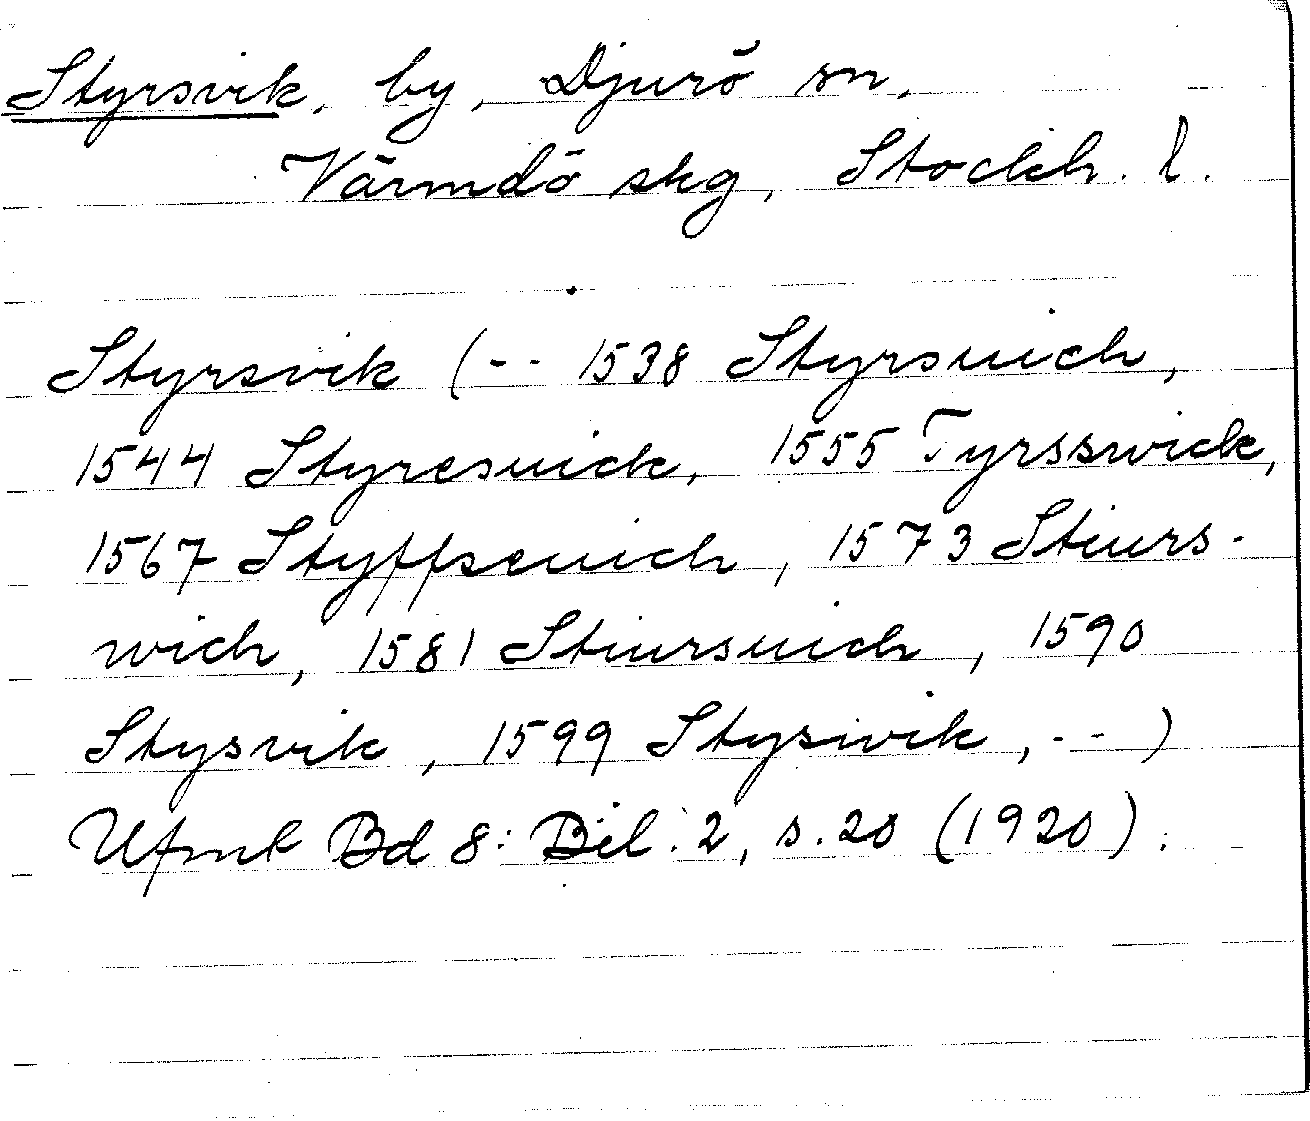 Styrsvik, by, Djurö sn,
Värmdö skg, Stockh. l.
Styrsvik (-- 1538 Styrsuich,
1544 Styresuick, 1555 Tyrsswick,
1567 Styffseuich, 1573 Stiurs-
wich, 1581 Stiursuich, 1590
Stysvik, 1599 Stysivik, --)
Ufmt Bd 8: Bil. 2, s. 20 (1920).